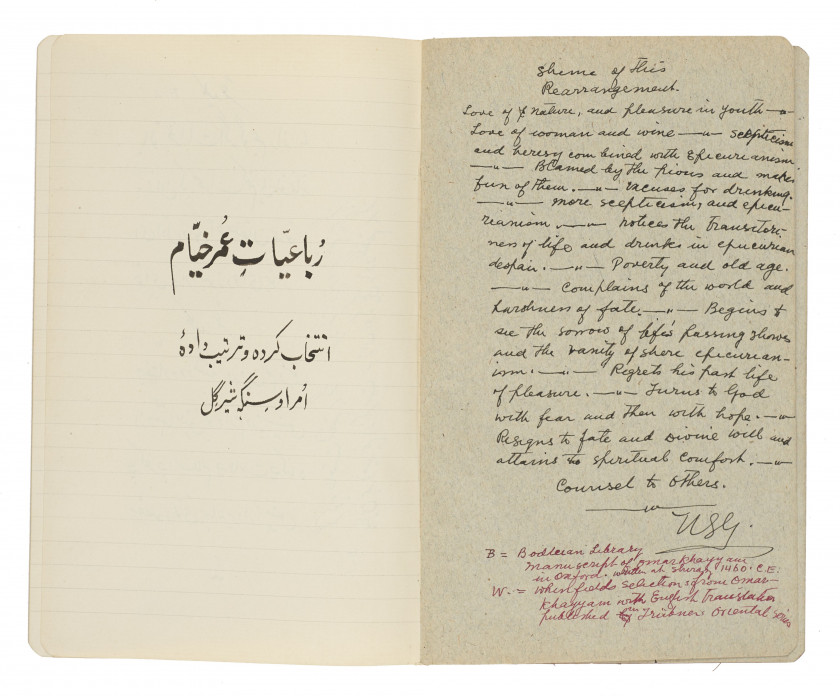 رُباعیّاتِ عُمر خیّام
انتخاب کردہ و ترتیب دادۂ
اُمراوسِنگھ شیرگِل
Sheme of this
Rearrangement.
Love of nature, and pleasure in youth —〃—
Love of woman and wine —〃— scepticism
and heresy combined with Epicurianism
—〃— Blamed by the pious and makes
fun of them. —〃— Excuses for drinking.
—〃— more scepticism, and epicu-
reanism. —〃— notices the transitori-
ness of life and drinks in epicurian
despair. —〃— Poverty and old age.
—〃— Complains of the world and
hardness of fate. —〃— Begins to
see the sorrow of life's passing shows
and the vanity of shere epicurean-
ism. —〃— Regrets his past life
of pleasure. —〃— Turns to God
with fear and then with hope. —〃—
Resigns to fate and divine will and
attains to spiritual comfort. —〃—
Counsel to others.
USG.
B = Bodleian Library
manuscript of Omar Khayyam
in Oxford. written at Shiraz 1460. C.E.
W. = Whinfields selections from Omar
Khayyam with English translation
published in Trübner Oriental Series